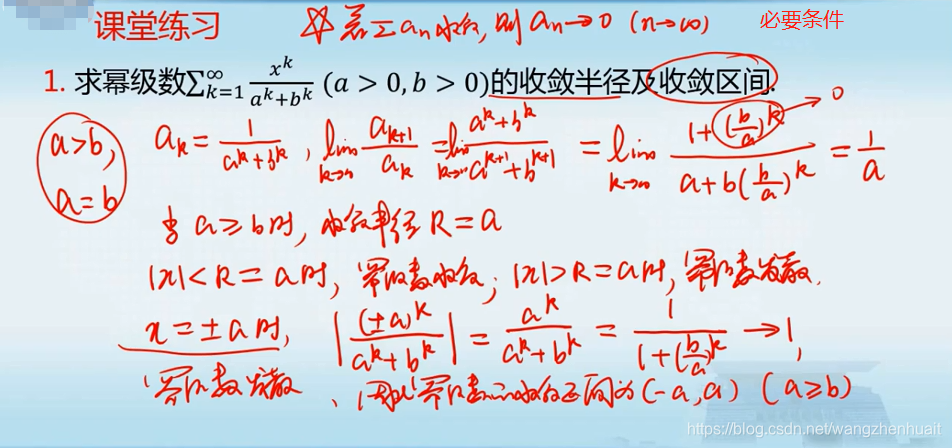 课堂练习 ☆若∑aₙ收敛,则aₙ→0 (n→∞) 必要条件
1. 求幂级数∑_{k=1}^{∞} x^k/(a^k+b^k) (a > 0, b > 0)的收敛半径及收敛区间.
a>b,
a=b
a_k = 1/(a^k+b^k), lim_{k→∞} a_{k+1}/a_k = lim_{k→∞} (a^k+b^k)/(a^{k+1}+b^{k+1}) = lim_{k→∞} (1+(b/a)^k)/(a+b(b/a)^k) = 1/a
0
当 a≥b时, 收敛半径 R=a
|x|<R=a时, 幂级数收敛; |x|>R=a时, 幂级数发散.
x=±a时, |(±a)^k/(a^k+b^k)| = a^k/(a^k+b^k) = 1/(1+(b/a)^k) →1,
幂级数发散、因此幂级数的收敛区间为(-a,a) (a≥b)
https://blog.csdn.net/wangzhenhuait